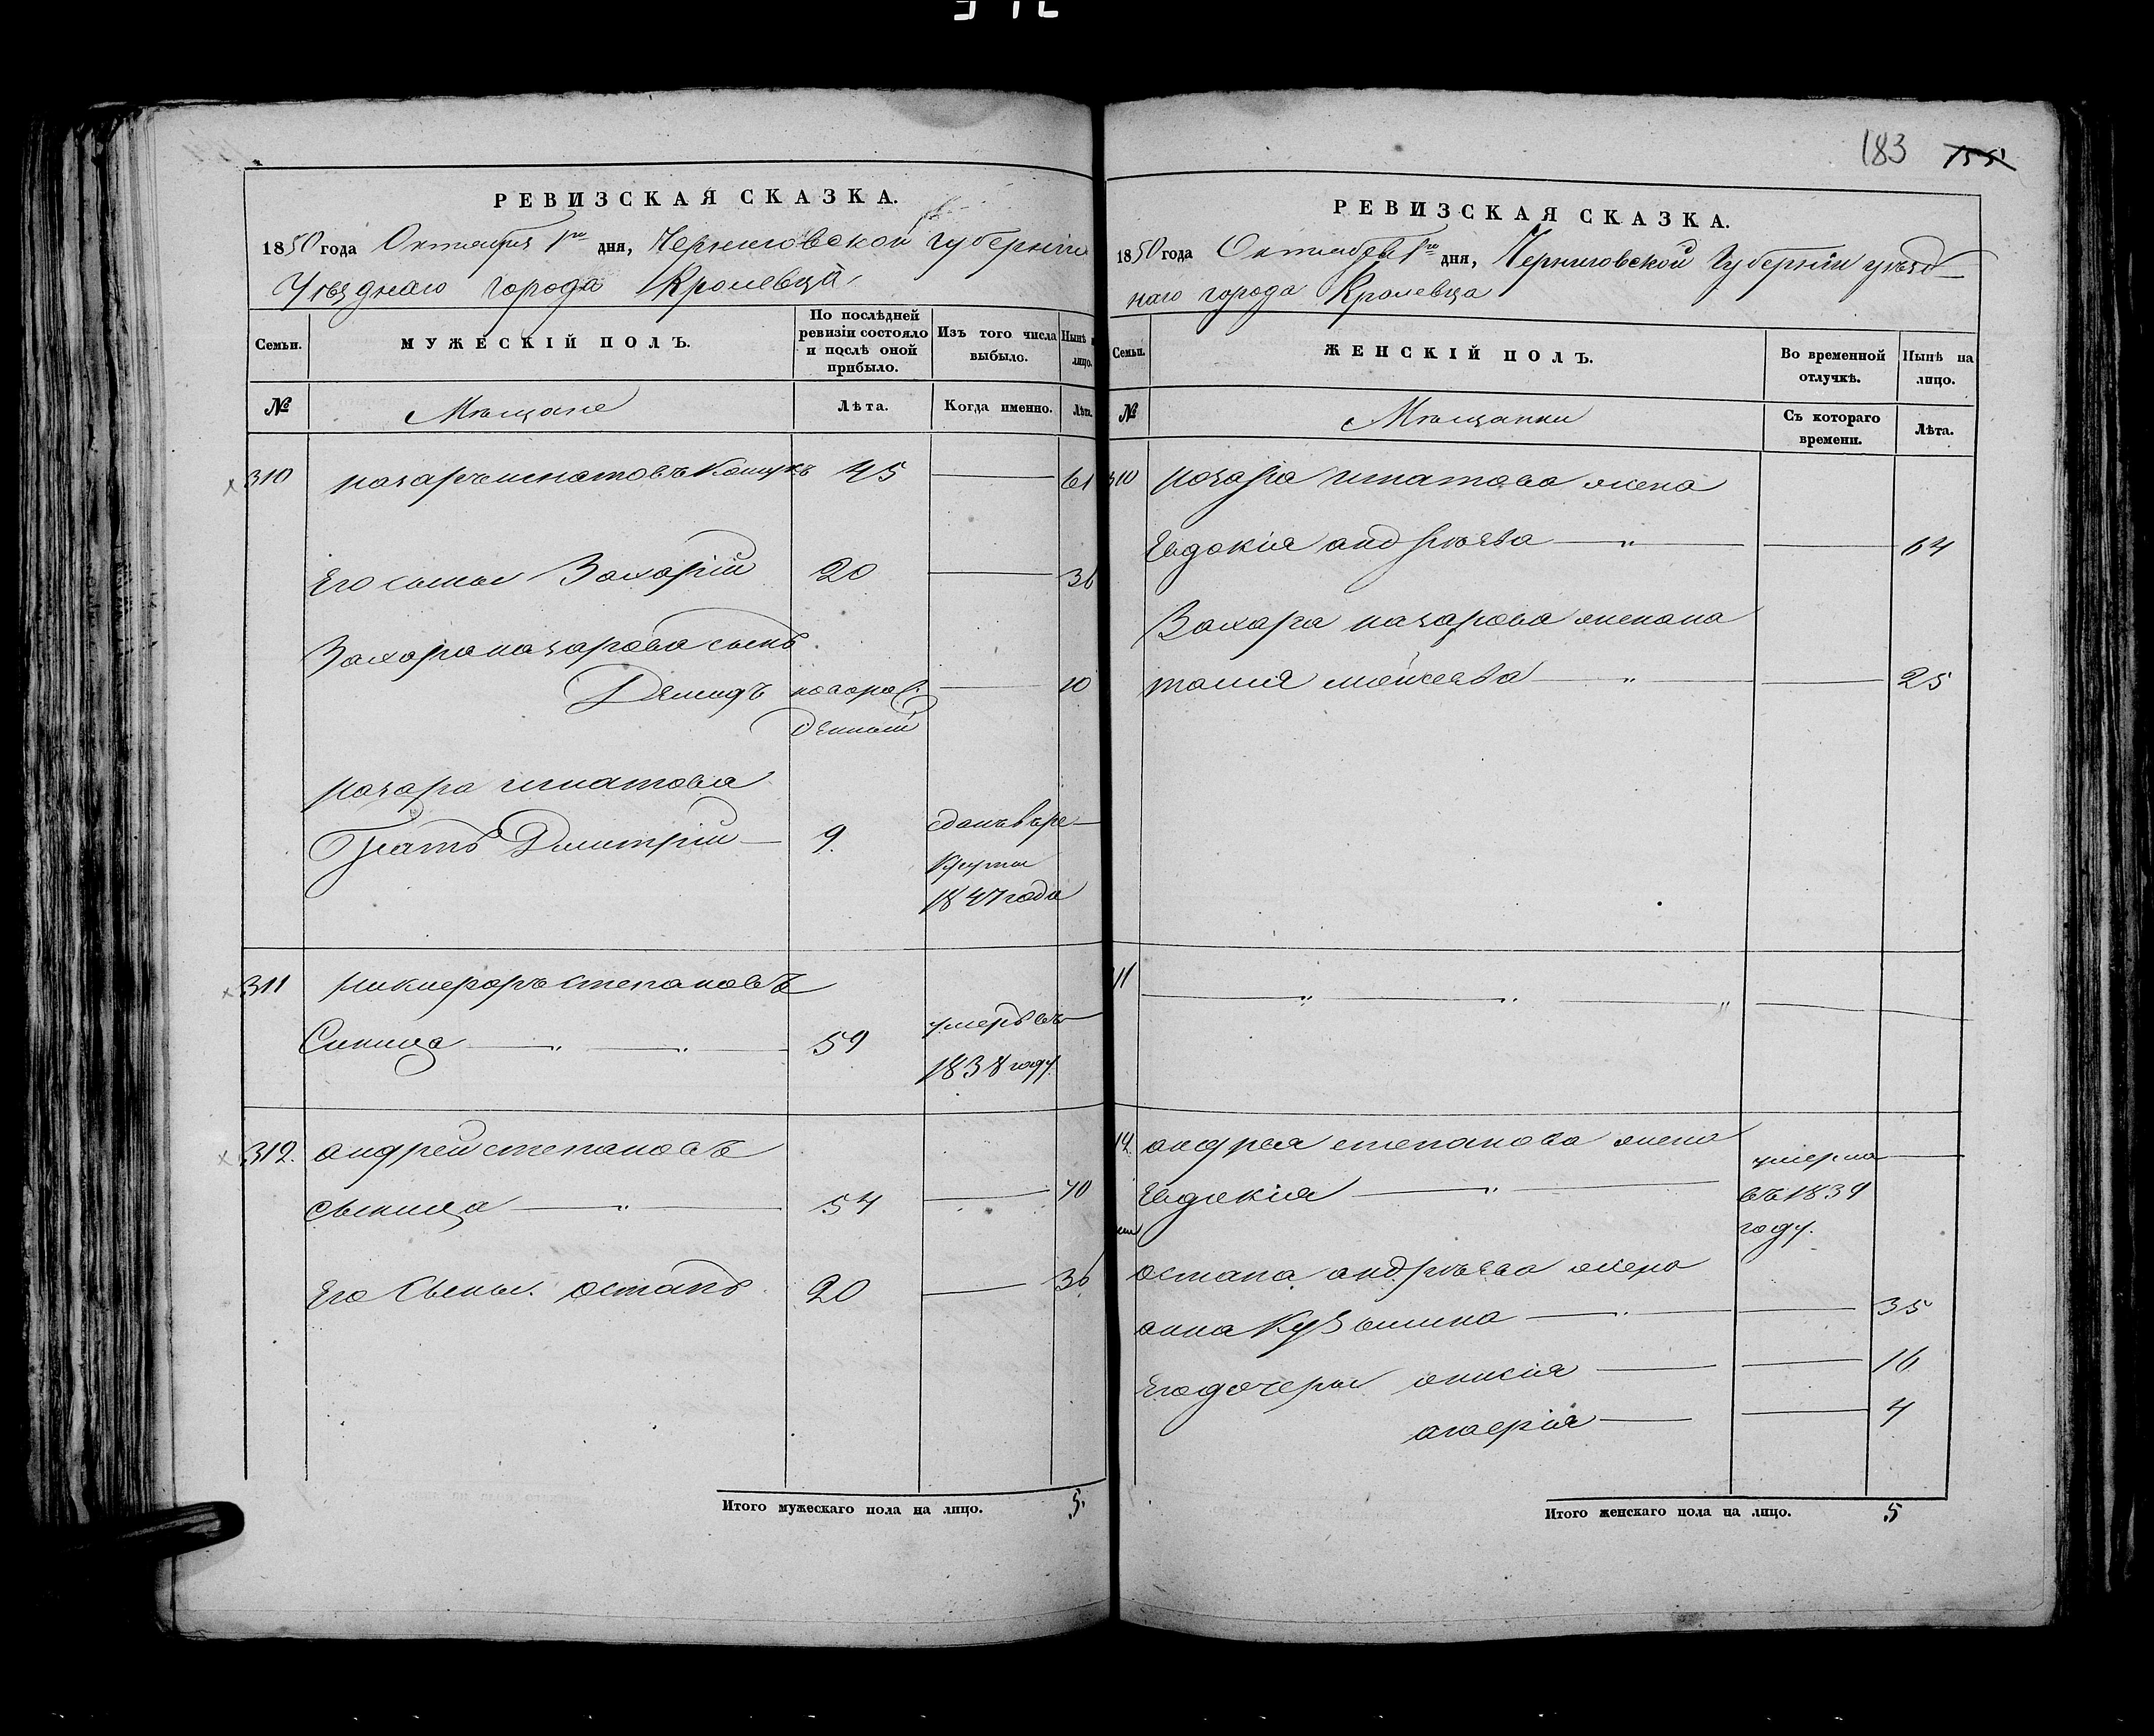 183 155
РЕВИЗСКАЯ СКАЗКА.
1850 года Октября 1го дня, Черниговской губерніи
Уѣзднаго города Кролевца
Семьи. МУЖЕСКІЙ ПОЛЪ. По послѣдней ревизіи состояло и послѣ оной прибыло. Изъ того числа выбыло. Нынѣ на лицо.
№ Мѣщане Лѣта. Когда именно. Лѣта.
310 назаръ игнатовъ 45 61
Его сынъ Захарій 20 36
Захара назарова сынъ
Демидъ новорож 10
денный
назара игнатова
Братъ Дмитрій 9. сданъ въ ре
круты
1847 года
311 никифоръ степановъ
Синица 59 умеръ въ
1838 году.
312. андрей степановъ
сыница 54 70
Его Сынъ остапъ 20 36
Итого мужескаго пола на лицо. 5.
РЕВИЗСКАЯ СКАЗКА.
1850 года Октября 1го дня, Черниговской Губерніи уѣзд
наго города Кролевца
Семьи. ЖЕНСКІЙ ПОЛЪ. Во временной отлучкѣ. Нынѣ на лицо.
№ Мѣщанки Съ котораго времени. Лѣта.
310 назара игнатова жена
Евдокія андрѣева 64
Захара назарова жена на
талия моисеева 25
11
12 андрея степанова жена
Евдокія умерла
въ 1839
году.
остапа андрѣева жена
анна Кузьмина 35
Его дочеры анисія 16
4
Итого женскаго пола на лицо. 5